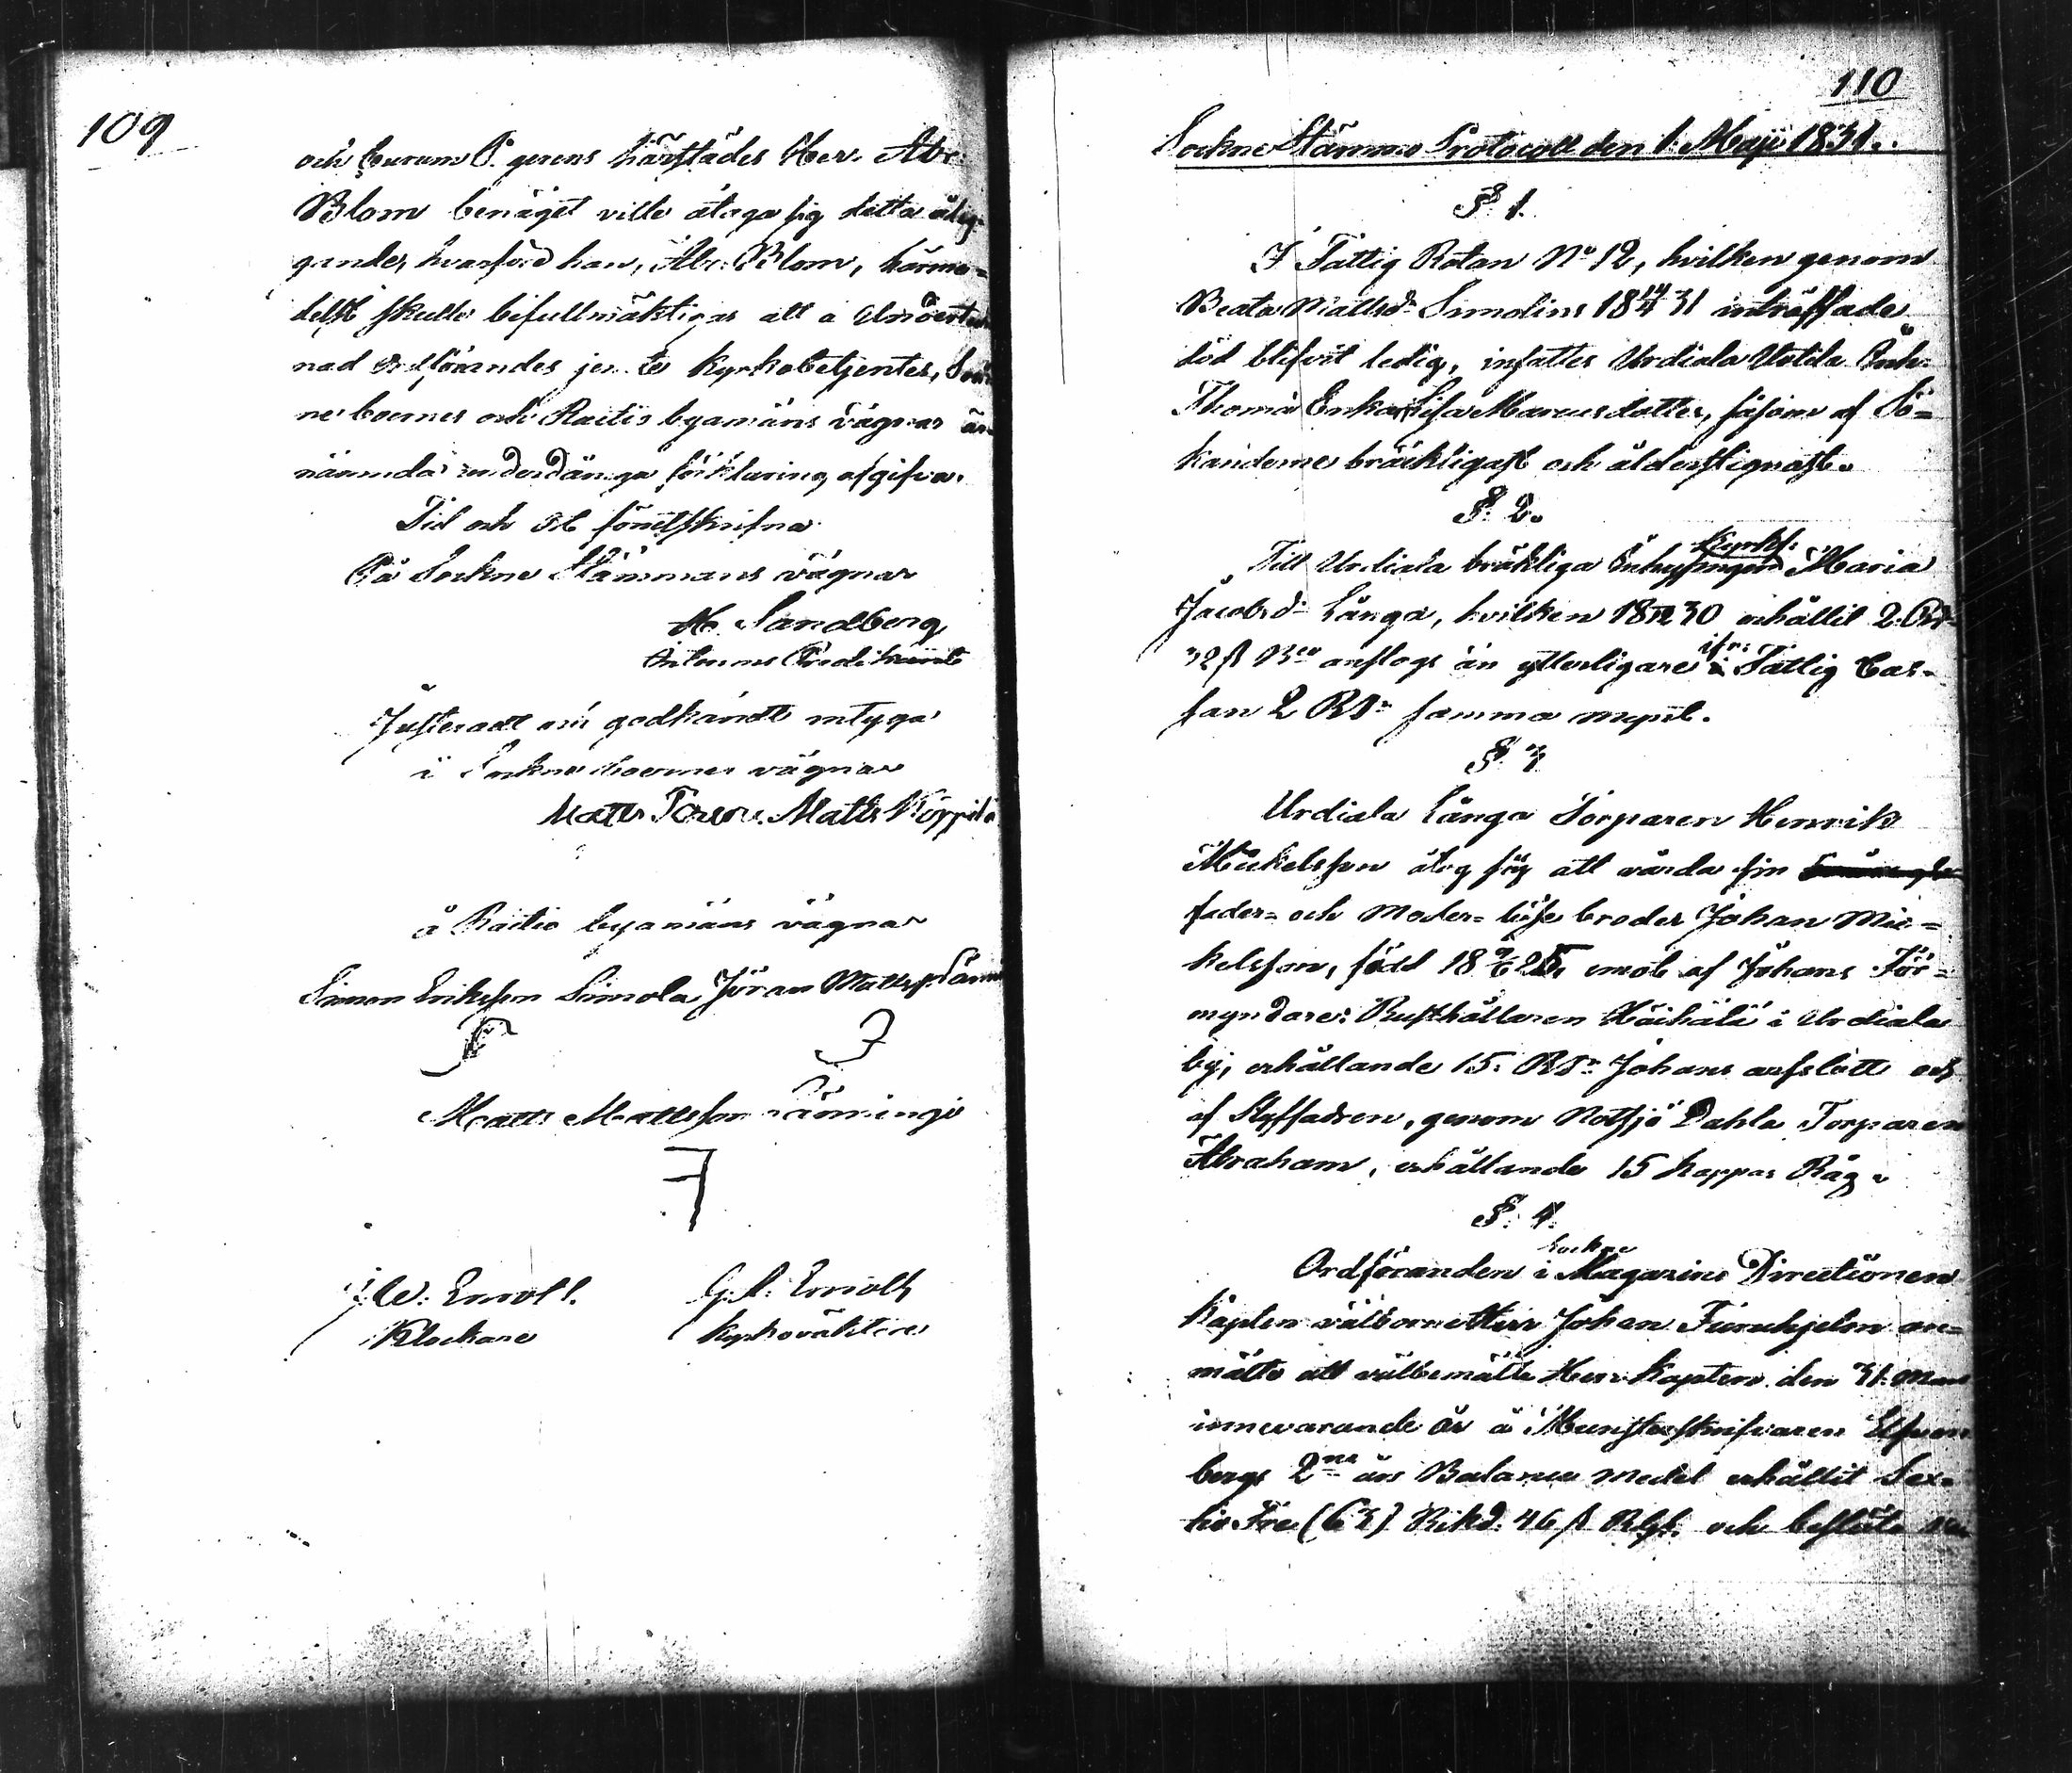 109
och Curam P. gerens härstädes Her. Abr.
Blom benäget ville åtaga sig detta ålig-
gande, hvarföre han, Abr. Blom, härme-
delst skulle befullmäktigas att å Underteck
nad Ordförandes jemte Kyrkobetjentes, Sock
ne boernes och Raitio byamäns vägnar än
nämnda underdåniga förklaring afgifva.
Tid och Ort förutskrifne
På Sockne Stämmans vägnar
Ab. Sandberg
Ordförande Predikant
Justeradt och godkändt intyga
å Sockneboernes vägnar
Matts Matts Köppilä
å Raitio byamäns vägnar
Simon Eriksson Simola Jöran Mattss.
Matts Mattsson
F
W: Enrolt. G. A: Enrolt
Klockare Kyrkoväktare
110
Sockne Stämmo Protocoll den 1. Maji 1831.
§. 1.
I Fattig Rotan No 12, hvilken genom
Beata Mattsdr Simolins 18 31 inträffade
död blifvit ledig, insattes Urdiala Uotila Inh.
Thomæ Enka Lisa Marcusdotter, såsom af Sö-
kanderne bräckligast och ålderstignast.
§. 2.
Till Urdiala bräkliga Inhysingen Kyrkf: Maria
Jacobsdr Långa, hvilken 18 30 erhållit 2. Rd
32 ß Bco anslogs än ytterligare ifrån Fattig Cas-
san 2 RDr samma mynt.
§ 3
Urdiala Långa Torparen Henrik
Mickelsson åtog sig att vårda sin
fader- och moder-löse broder Johan Mic-
kelsson, född 18 25, emot af Johans För-
myndare: Rusthållaren Häihälä i Urdiala
by, erhållande 15. RDr Johans arfslott och
af Styffadren, genom Notsjö Dahla Torparen
Abraham, erhållande 15 kappar Råg.
§. 4.
Ordföranden i Sockne Magazins Directionen
Kapten välborne Herr Johan Furuhjelm an-
mälte att välbemälte Herr Kapten den 31. Mars
innevarande år å Munsterskrifvaren Elfven
bergs 2ne års Balance medel erhållit Sex-
tio Tre (63) Riksd. 46 ß Rgs. och beslöts